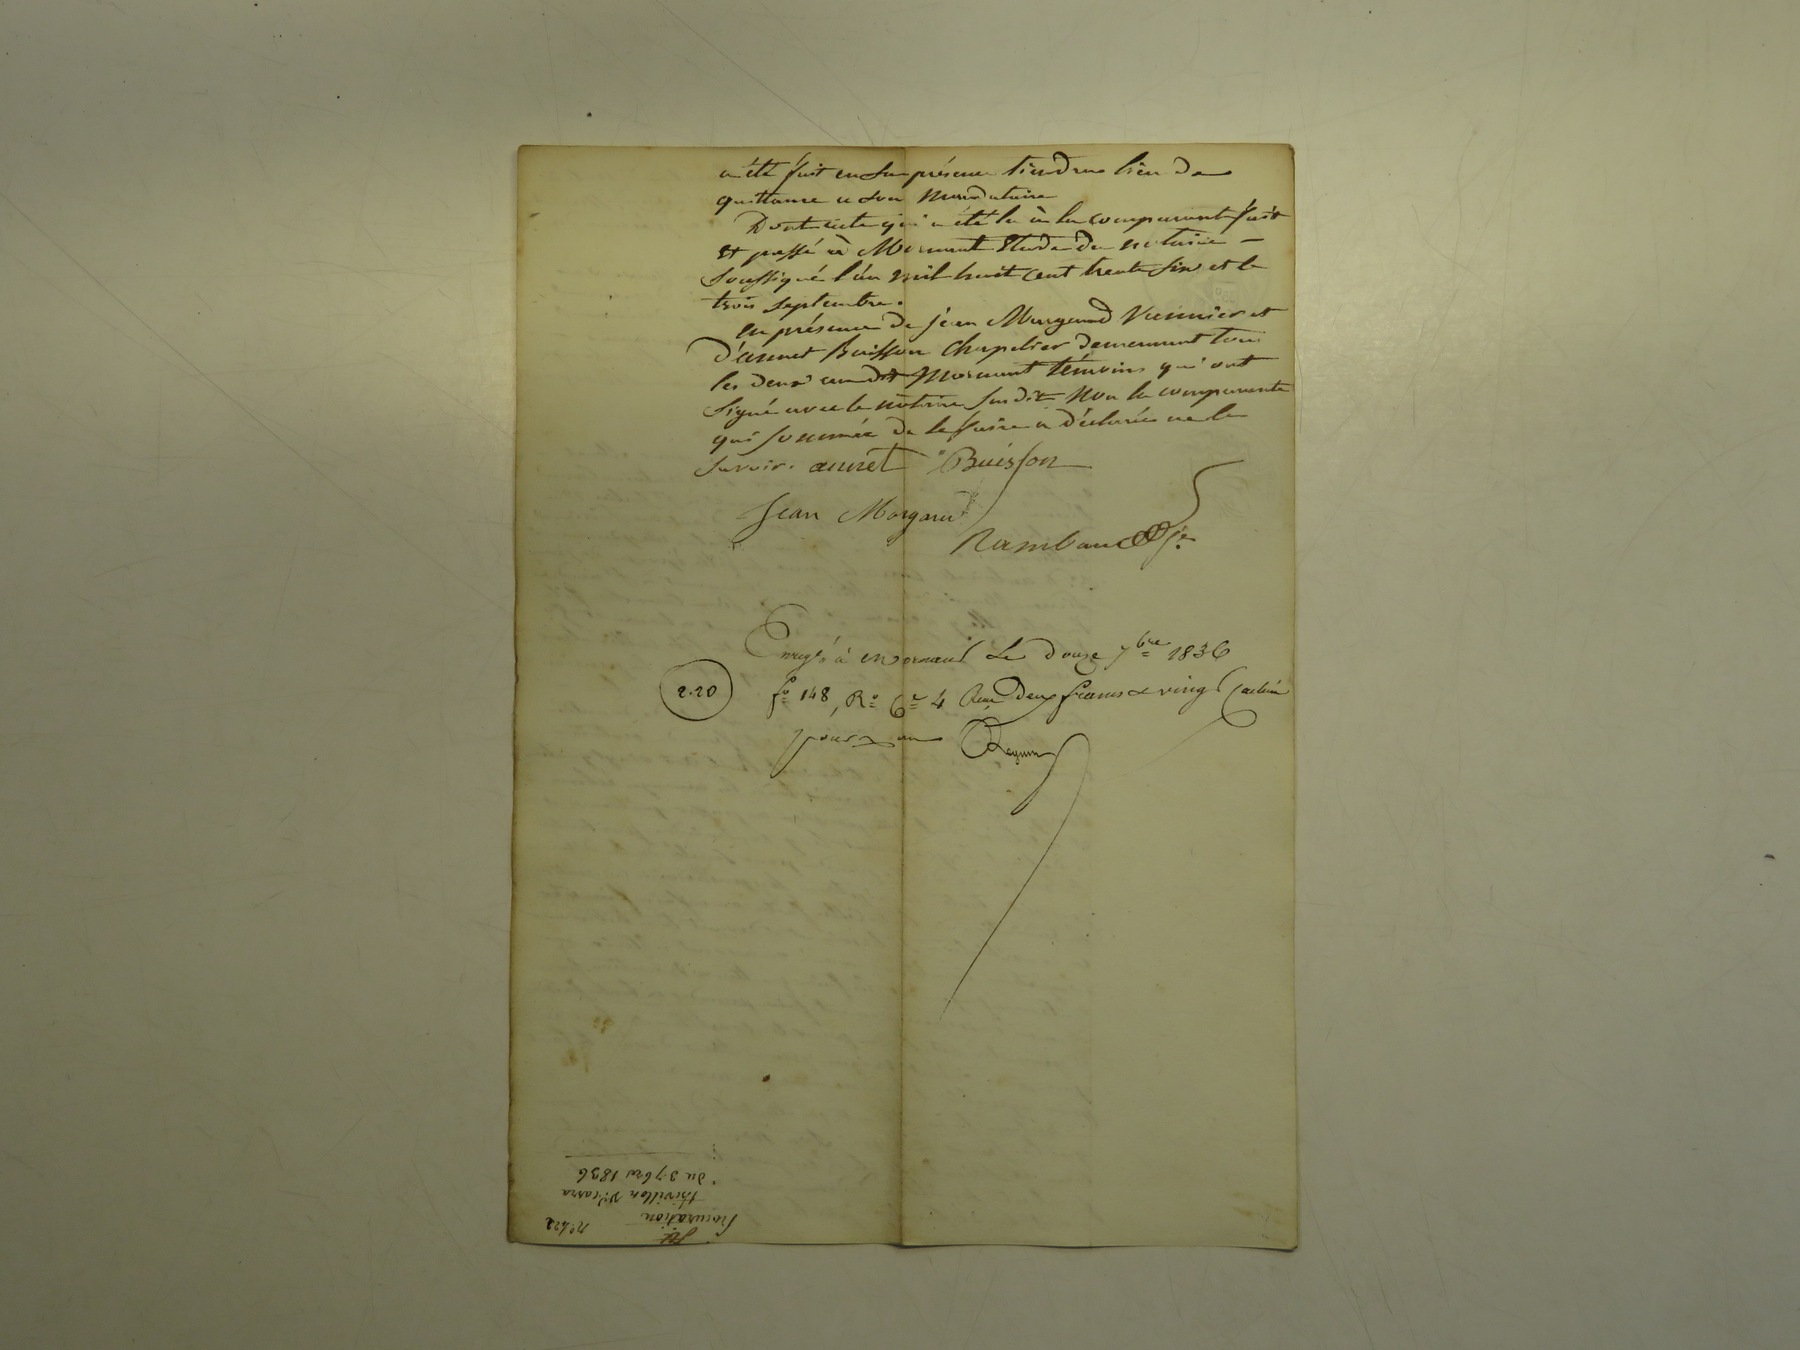 a été fait en sa présence tiendra lieu de
quittance a son mandataire
Dont acte qui a été lu à la comparante fait
et passé à Mornant Etude du notaire
soussigné l'an mil huit cent trente six et le
trois septembre.
en présence de jean Morgand Vannier et
d'annet Buisson Chapelier demeurant tous
les deux au dit Mornant témoins qui ont
signé avec le notaire susdit non la comparante
qui sommée de le faire a déclarée ne le
savoir. annet Buisson
Jean Morgand
Rambaud
Enregé à Mornant Le douze 7bre 1836
fo 148, Ro Ce 4 Reçu deux francs & vingt C
2.20
pour
Procuration
thivillon Ve carra
du 3 7bre 1836